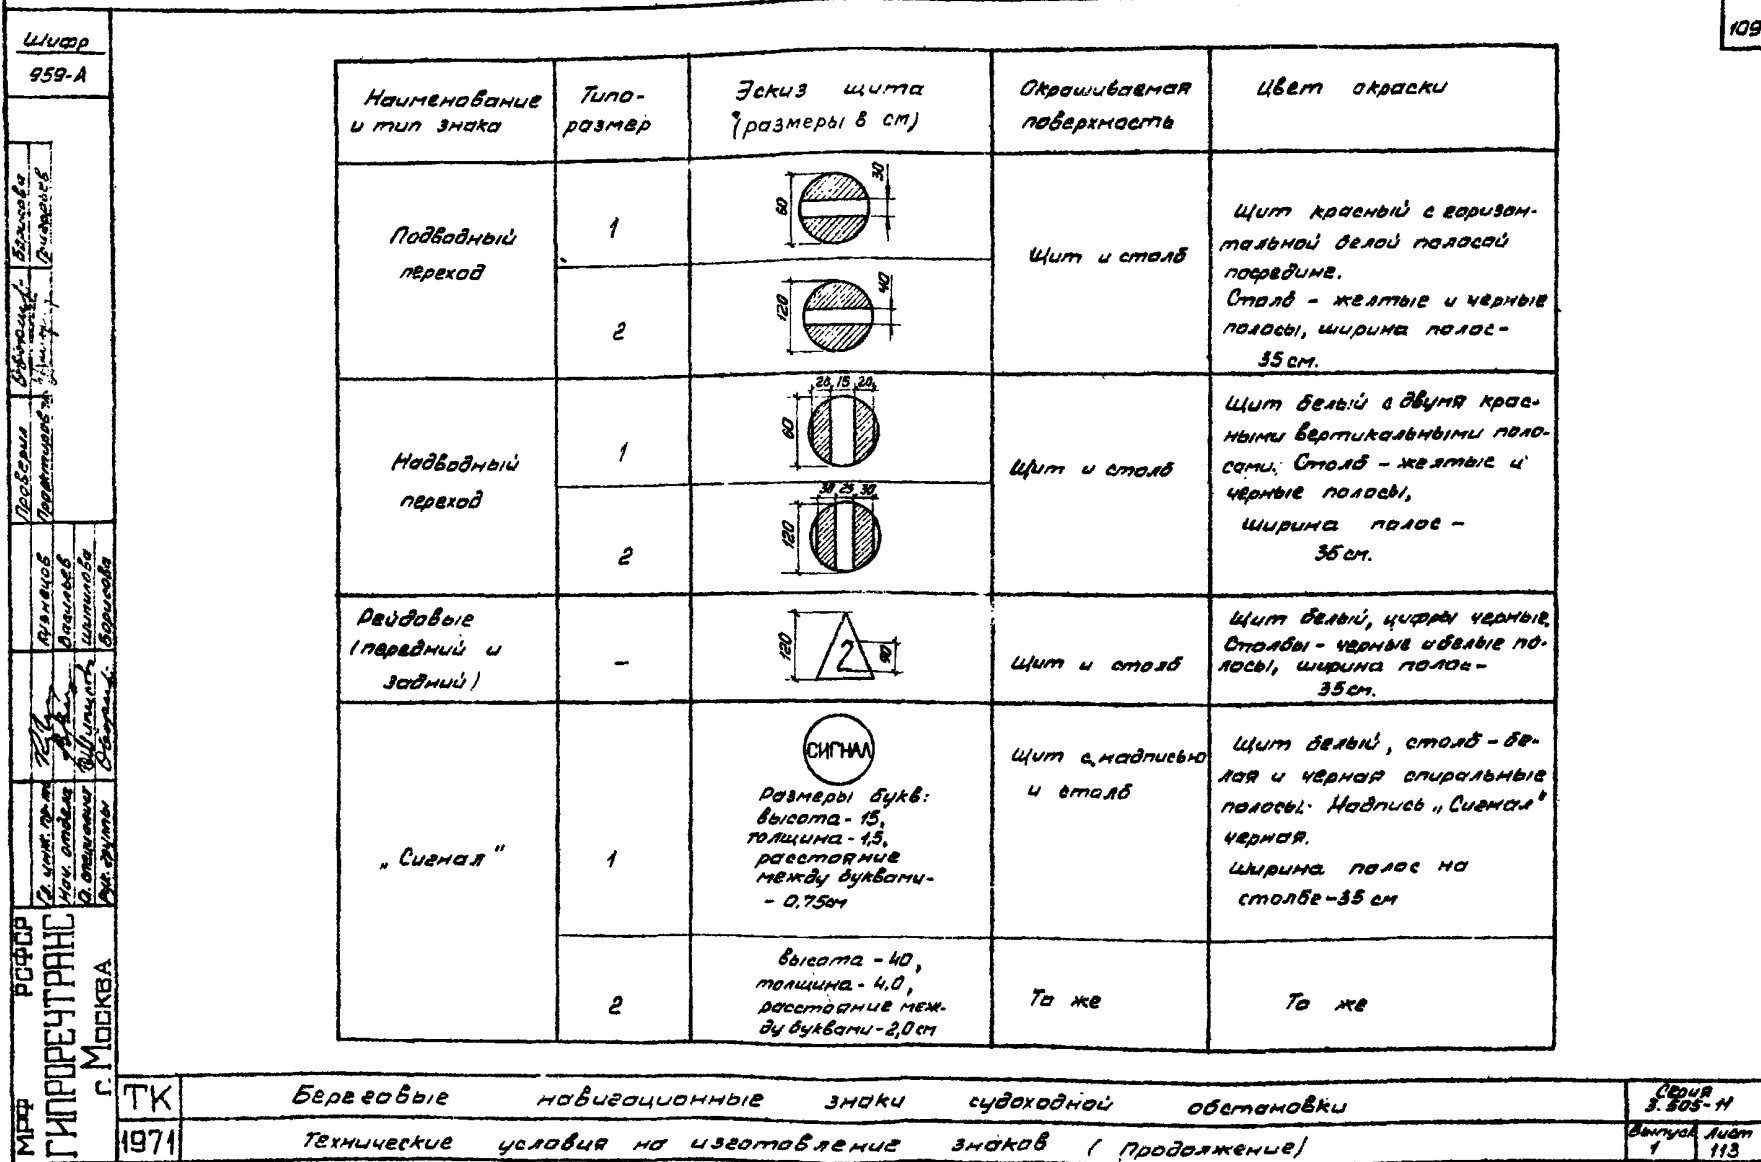 109
Шифр
959-А
Наименование
и тип знака
Типо-
размер
Эскиз щита
(размеры в см)
Окрашиваемая
поверхность
Цвет окраски
Подводный
переход
1
60
30
2
120
40
Щит и столб
Щит красный с горизон-
тальной белой полосой
посредине.
Столб - желтые и черные
полосы, ширина полос -
35 см.
Надводный
переход
1
20 15 20
60
2
30 25 30
120
Щит и столб
Щит белый с двумя крас-
ными вертикальными поло-
сами. Столб - желтые и
черные полосы,
ширина полос -
35 см.
Рейдовые
(передний и
задний)
-
120
2
90
Щит и столб
Щит белый, цифры черные.
Столбы - черные и белые по-
лосы, ширина полос -
35 см.
„Сигнал"
1
СИГНАЛ
Размеры букв:
высота - 15,
толщина - 1,5,
расстояние
между буквами -
- 0,75см
Щит с надписью
и столб
Щит белый, столб - бе-
лая и черная спиральные
полосы. Надпись „Сигнал"
черная.
Ширина полос на
столбе - 35 см
2
высота - 40,
толщина - 4,0,
расстояние меж-
ду буквами - 2,0 см
То же
То же
Проверил
Борисова
Проектировал
Григорьев
Гл. инж. пр-та
Кузнецов
Нач. отдела
Васильев
Гл. специалист
Шипилова
Рук. группы
Борисова
МРФ РСФСР
ГИПРОРЕЧТРАНС
г. Москва
ТК
1971
Береговые навигационные знаки судоходной обстановки
Технические условия на изготовление знаков (Продолжение)
Серия
3.505-11
Выпуск
1
Лист
113